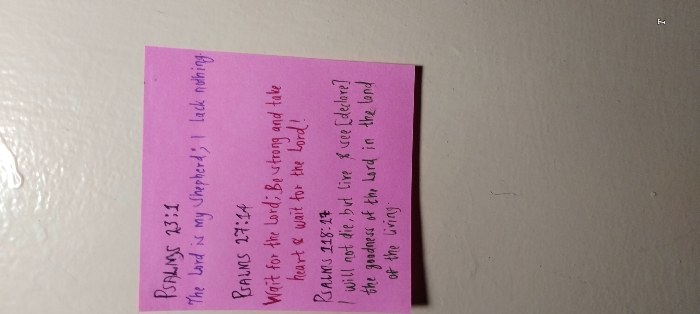 PSALMS 23:1
The Lord is my shepherd; I lack nothing.
PSALMS 27:14
Wait for the Lord; Be strong and take
heart & wait for the Lord!
PSALMS 118:17
I will not die, but live & see [declare]
the goodness of the Lord in the land
of the living.